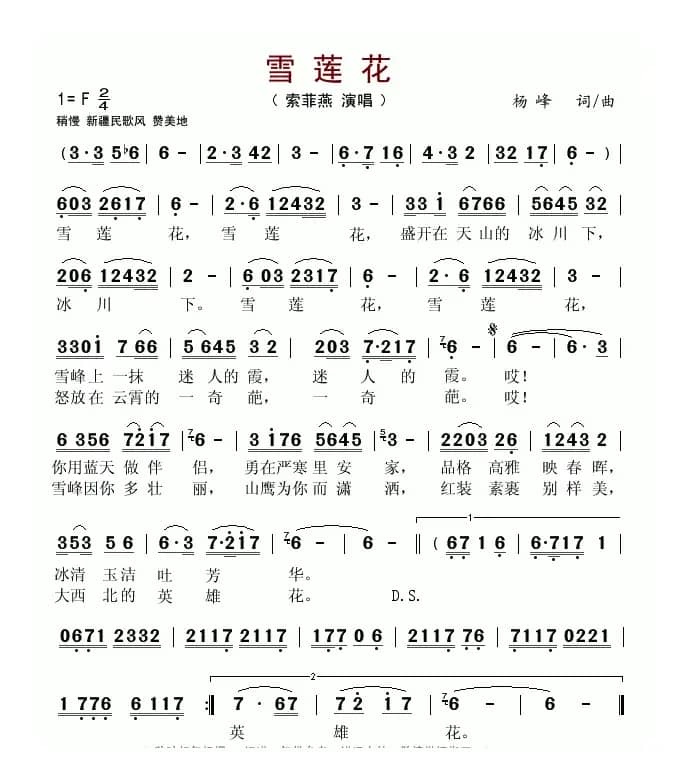 雪莲花
1=F 2/4 （索菲燕 演唱） 杨峰 词/曲
稍慢 新疆民歌风 赞美地
(3·3 5♭6 | 6 - | 2·3 42 | 3 - | 6·7 16 | 4·3 22 | 32 17 | 6 - ) |
603 2617 | 6 - | 2·6 12432 | 3 - | 33 i 6766 | 5645 32 |
雪 莲 花， 雪 莲 花， 盛开在 天山的 冰川下，
206 12432 | 2 - | 603 2317 | 6 - | 2·6 12432 | 3 - |
冰 川 下。 雪 莲 花， 雪 莲 花，
330i 7 66 | 5 645 3 2 | 203 7·217 | 6 - | 6 - | 6·3 |
雪峰上 一抹 迷人的霞， 迷 人 的 霞。 哎！
怒放在 云霄的 一奇葩， 一 奇 葩。 哎！
6 356 7217 | 6 - | 3 i76 5645 | 3 - | 2203 26 | 1243 2 |
你用蓝天 做伴 侣， 勇在严寒 里安 家， 品格 高雅 映春晖，
雪峰因你 多壮 丽， 山鹰为你 而潇 洒， 红装 素裹 别样美，
353 5 6 | 6·3 7·2i7 | 6 - | 6 - ‖ ( 67 1 6 | 6·717 1 |
冰清 玉洁 吐 芳 华。
大西 北的 英 雄 花。 D.S.
0671 2332 | 2117 2117 | 177 0 6 | 2117 76 | 7117 0221 |
1 776 6 117 :‖ 7 · 67 | 7 2 i 7 | 6 - | 6 - ‖
英 雄 花。